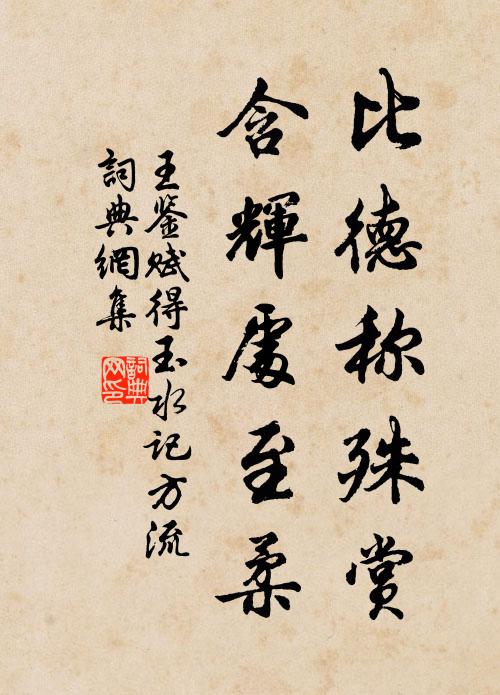 比德称殊赏
含輝處至柔
王鉴赋得玉水记方流
詞典網集
詞典网印